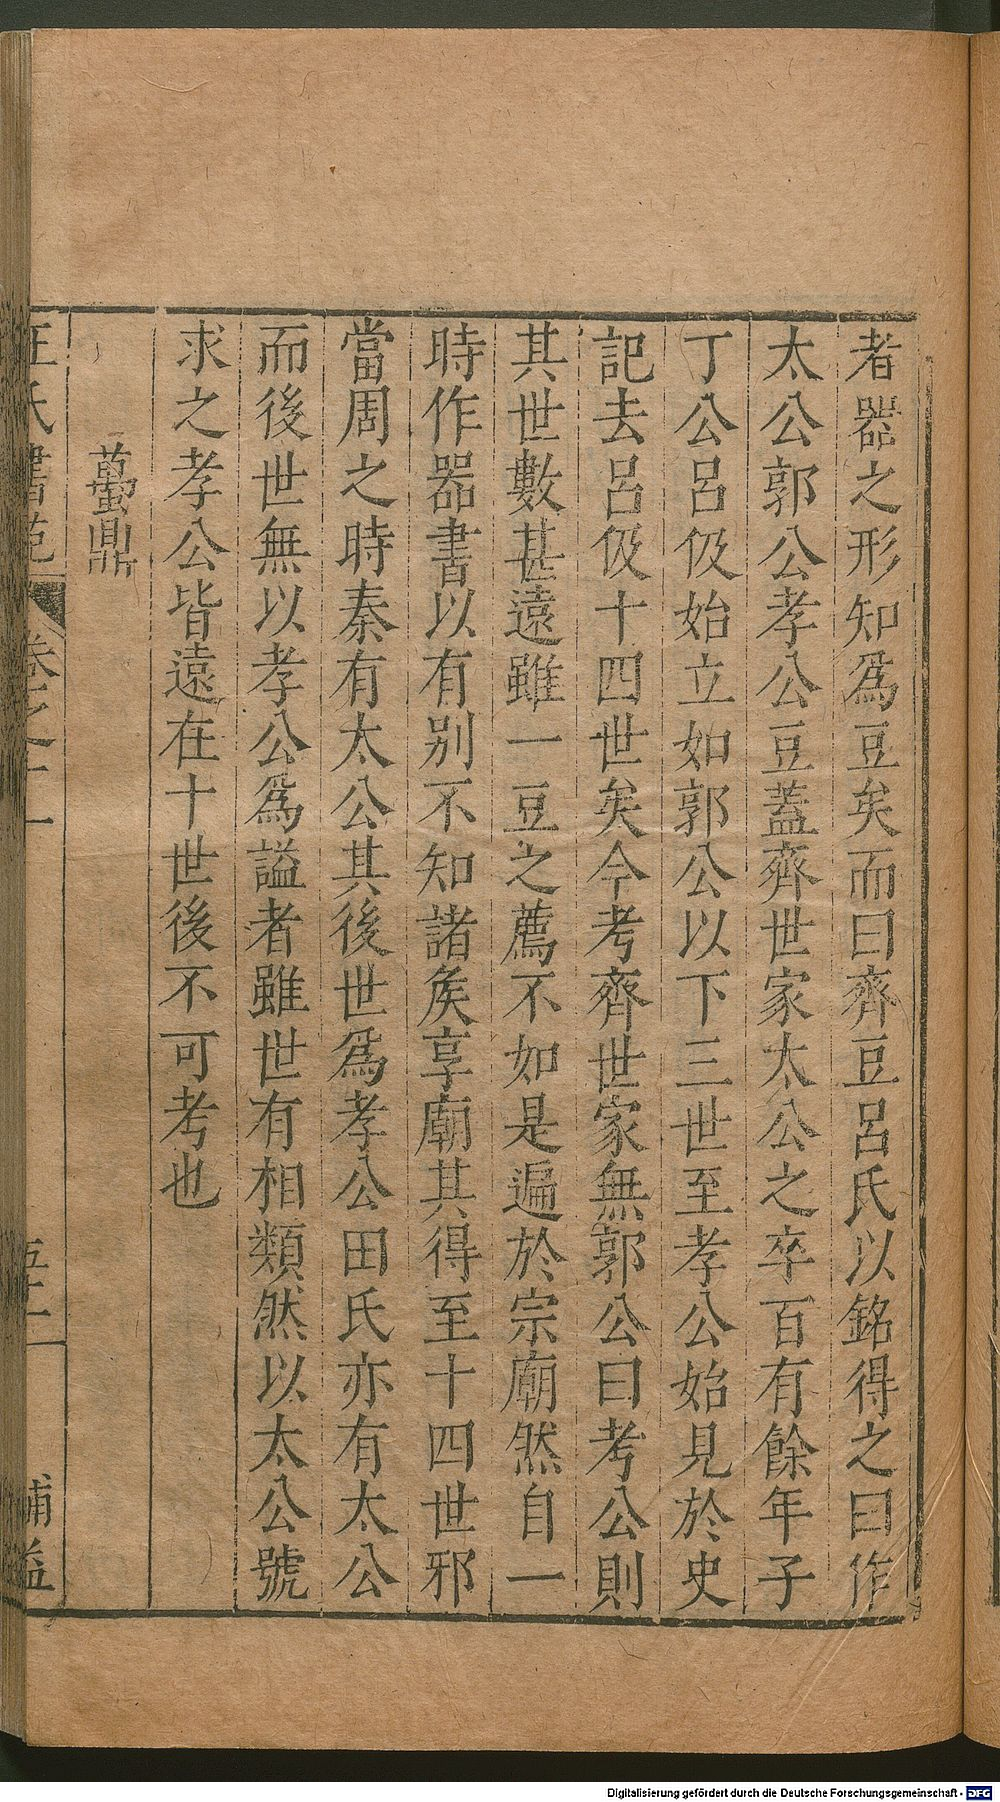 者器之形知爲豆矣而曰齊豆呂氏以銘得之曰作
太公郭公孝公豆蓋齊世家太公之卒百有餘年子
丁公呂伋始立如郭公以下三世至孝公始見於史
記去呂伋十四世矣今考齊世家無郭公曰考公則
其世數甚遠雖一豆之薦不如是遍於宗廟然自一
時作器書以有別不知諸矦享廟其得至十四世邪
當周之時秦有太公其後世爲孝公田氏亦有太公
而後世無以孝公爲謚者雖世有相類然以太公號
求之孝公皆遠在十世後不可考也
蠆鼎
王氏書苑 卷之十一 五十一 補益
Digitalisierung gefördert durch die Deutsche Forschungsgemeinschaft - DFG